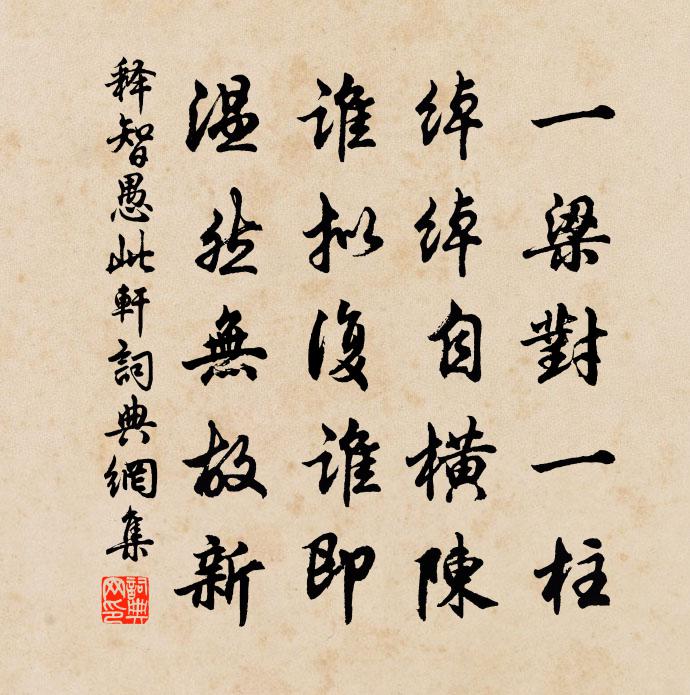 一梁對一柱
綽綽自橫陳
誰拟復誰即
温然無故新
释智愚此軒詞典網集
詞典網印